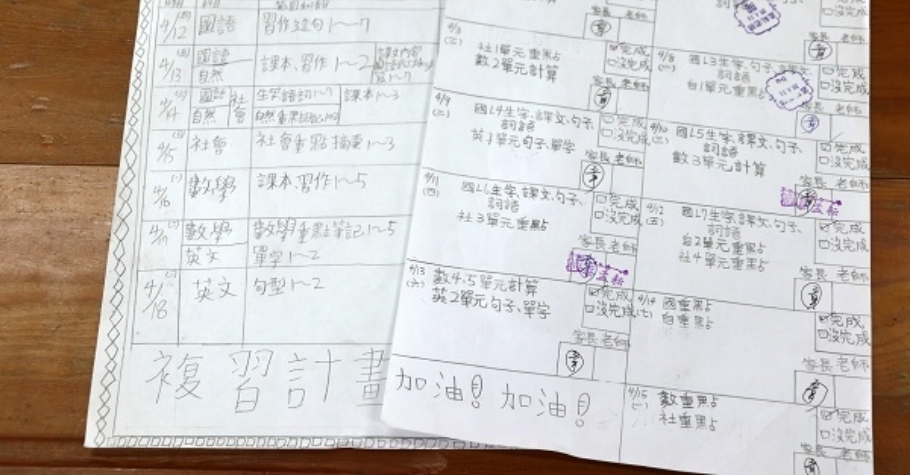 4/12
國語
習作造句1~7
4/13
國語
自然
課本、習作1~2
4/14
國語
社會
課本1~3
4/15
社會
社會重點摘要1~3
4/16
數學
課本、習作1~5
4/17
數學
數學重點筆記1~5
英文
單字1~2
4/18
英文
句型1~2
複習計畫
4/3
社1單元重點
數2單元計算
完成
沒完成
家長 老師
4/8
國L3生字、句子、
詞語
自1單元重點
完成
沒完成
家長 老師
4/9
國L4生字、課文、句子、
詞語
英1單元句子、單字
完成
沒完成
家長 老師
4/10
國L5生字、課文、句子、
詞語
數3單元計算
完成
沒完成
家長 老師
4/11
(四)
國L6生字、課文、句子、
詞語
社3單元重點
完成
沒完成
家長 老師
4/12
(五)
國L7生字、課文、句子、
詞語
自2單元重點
社4單元重點
完成
沒完成
家長 老師
4/13
(六)
數4.5單元計算
英2單元句子、單字
完成
沒完成
家長 老師
4/14
國重點
自重點
完成
沒完成
家長 老師
4/15
數重點
社重點
完成
沒完成
加油! 加油!